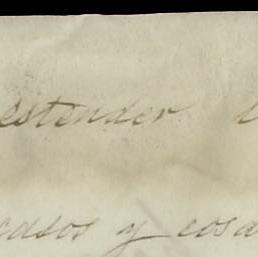 estender
casos y cosa